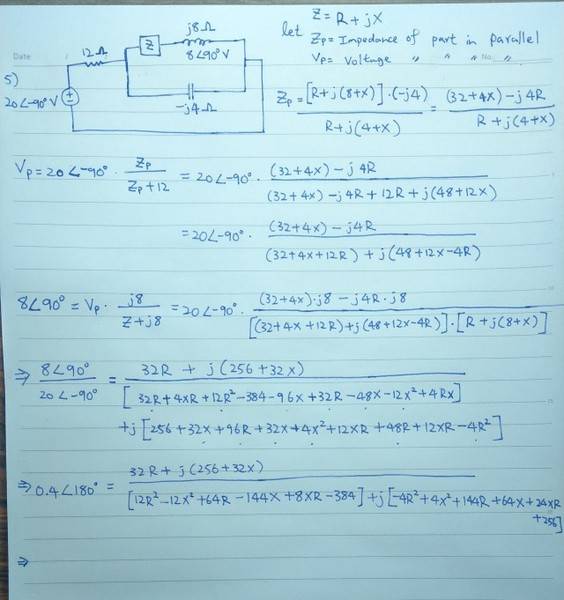 Date
No.
5)
12Ω
Z
j8Ω
8∠90° V
-j4Ω
20∠-90° V
let Z = R + jX
Zp = Impedance of part in parallel
Vp = Voltage " " " "
Zp = [R+j(8+X)]·(-j4) / R+j(4+X) = (32+4X)-j4R / R+j(4+X)
Vp = 20∠-90° · Zp / Zp+12 = 20∠-90° · (32+4X)-j4R / (32+4X)-j4R+12R+j(48+12X)
= 20∠-90° · (32+4X)-j4R / (32+4X+12R)+j(48+12X-4R)
8∠90° = Vp · j8 / Z+j8 = 20∠-90° · (32+4X)·j8-j4R·j8 / [(32+4X+12R)+j(48+12X-4R)]·[R+j(8+X)]
⇒ 8∠90° / 20∠-90° = 32R + j(256+32X) / [32R+4XR+12R²-384-96X+32R-48X-12X²+4RX]
+j[256+32X+96R+32X+4X²+12XR+48R+12XR-4R²]
⇒ 0.4∠180° = 32R+j(256+32X) / [12R²-12X²+64R-144X+8XR-384]+j[-4R²+4X²+144R+64X+24XR
+256]
⇒